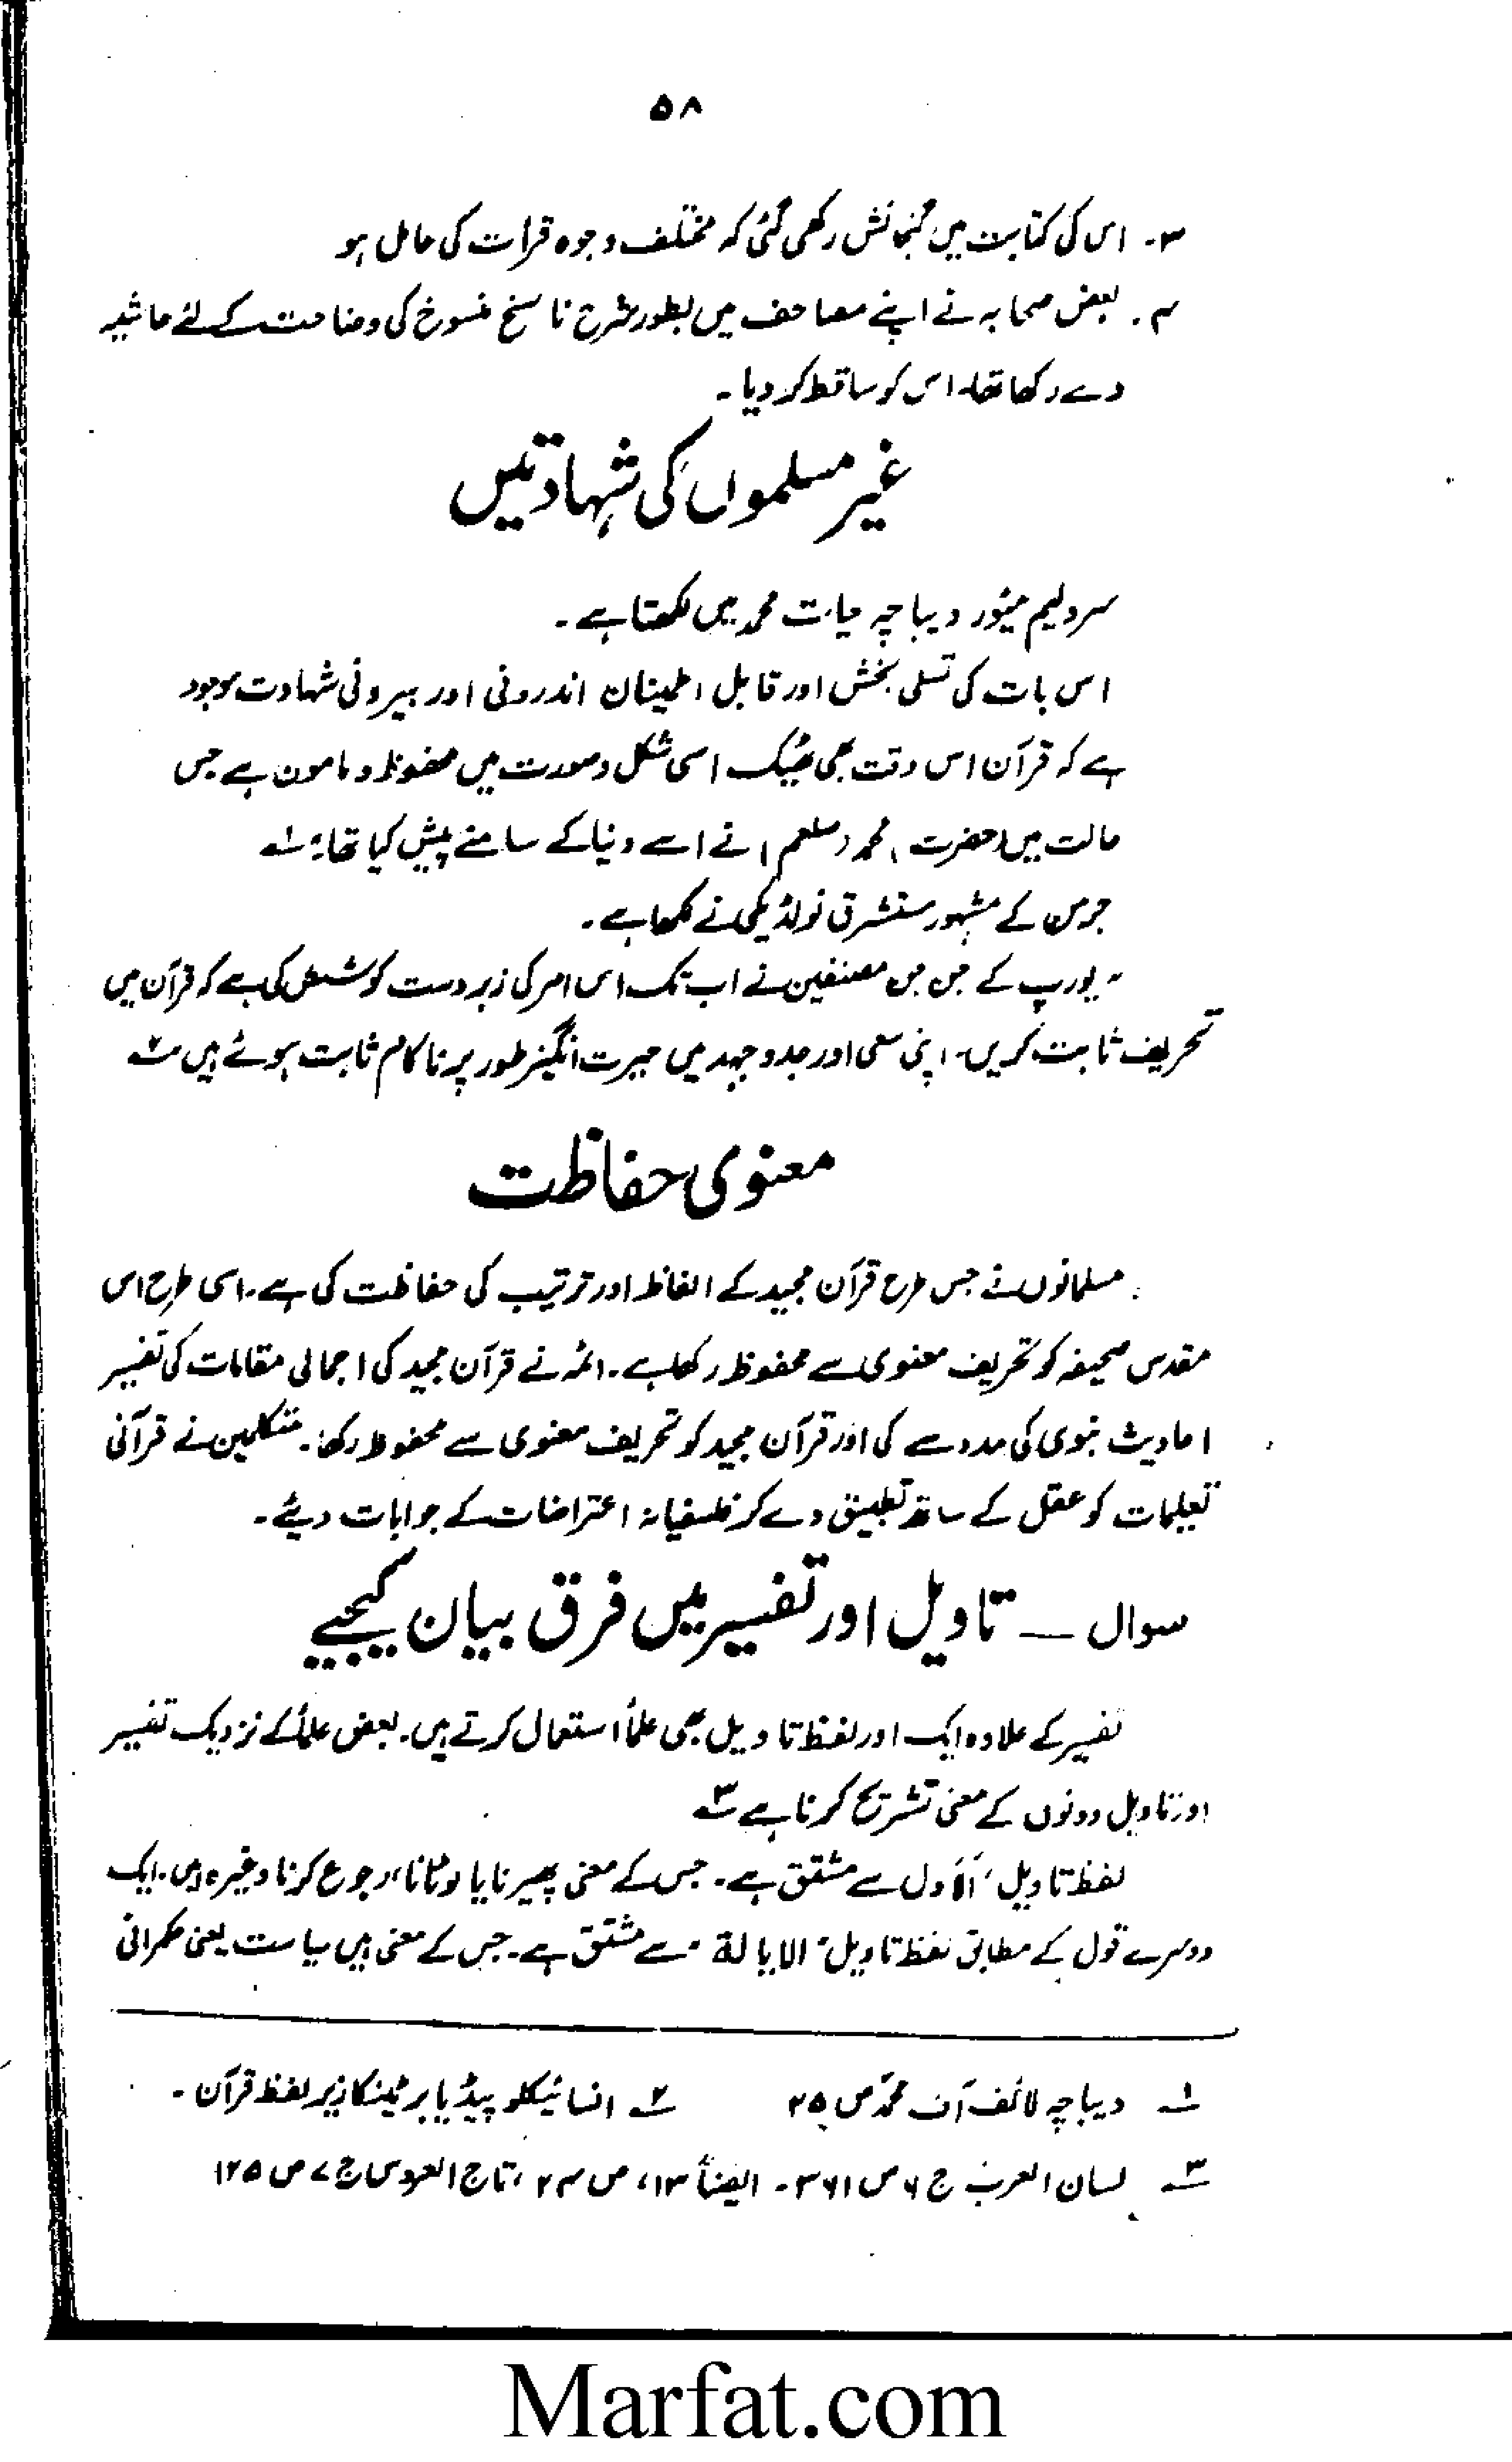 ۵۸
۳۔ اس کی کتابت میں گنجائش رکھی گئی کہ مختلف وجوہ قرات کی حامل ہو
۴۔ بعض صحابہ نے اپنے مصاحف میں بطور شرح ناسخ منسوخ کی وضاحت کے لئے حاشیہ
دے رکھا تھا، اس کو ساقط کر دیا۔
غیر مسلموں کی شہادتیں
سر ولیم میئور دیباچہ حیات محمد میں لکھتا ہے۔
اس بات کی تسلی بخش اور قابل اطمینان اندرونی اور بیرونی شہادت موجود
ہے کہ قرآن اس وقت بھی ٹھیک اسی شکل و صورت میں محفوظ و مامون ہے جس
حالت میں (حضرت) محمد (صلعم) نے اسے دنیا کے سامنے پیش کیا تھا" ۱؎
جرمن کے مشہور مستشرق نولڈیکی نے لکھا ہے۔
"یورپ کے جن جن مصنفین نے اب تک اس امر کی زبردست کوشش کی ہے کہ قرآن میں
تحریف ثابت کریں، اپنی سعی اور جدوجہد میں حیرت انگیز طور پر ناکام ثابت ہوئے ہیں ۲؎
معنوی حفاظت
مسلمانوں نے جس طرح قرآن مجید کے الفاظ اور ترتیب کی حفاظت کی ہے۔ اسی طرح اس
مقدس صحیفہ کو تحریف معنوی سے محفوظ رکھا ہے۔ ائمہ نے قرآن مجید کی اجمالی مقامات کی تفسیر
احادیث نبوی کی مدد سے کی اور قرآن مجید کو تحریف معنوی سے محفوظ رکھا۔ متکلمین نے قرآنی
تعلیمات کو عقل کے ساتھ تطبیق دے کر فلسفیانہ اعتراضات کے جوابات دیئے۔
سوال — تاویل اور تفسیر میں فرق بیان کیجیے
تفسیر کے علاوہ ایک اور لفظ تاویل بھی علماً استعمال کرتے ہیں۔ بعض علماً کے نزدیک تفسیر
اور تاویل دونوں کے معنی تشریح کرنا ہے ۳؎
لفظ تاویل، اَلاَوَل سے مشتق ہے۔ جس کے معنی پھیرنا یا لوٹانا، رجوع کرنا وغیرہ ہیں۔ ایک
دوسرے قول کے مطابق لفظ تاویل "الایالۃ" سے مشتق ہے۔ جس کے معنی ہیں سیاست یعنی حکمرانی
۱؎ دیباچہ لائف آف محمدؐ ص ۲۵ ۲؎ انسائیکلو پیڈیا برٹینکا زیر لفظ قرآن۔
۳؎ لسان العرب ج ۶ ص ۳۶۱۔ ایضاً ۱۳، ص ۲۴، تاج العروس ج ۷ ص ۱۲۵
Marfat.com